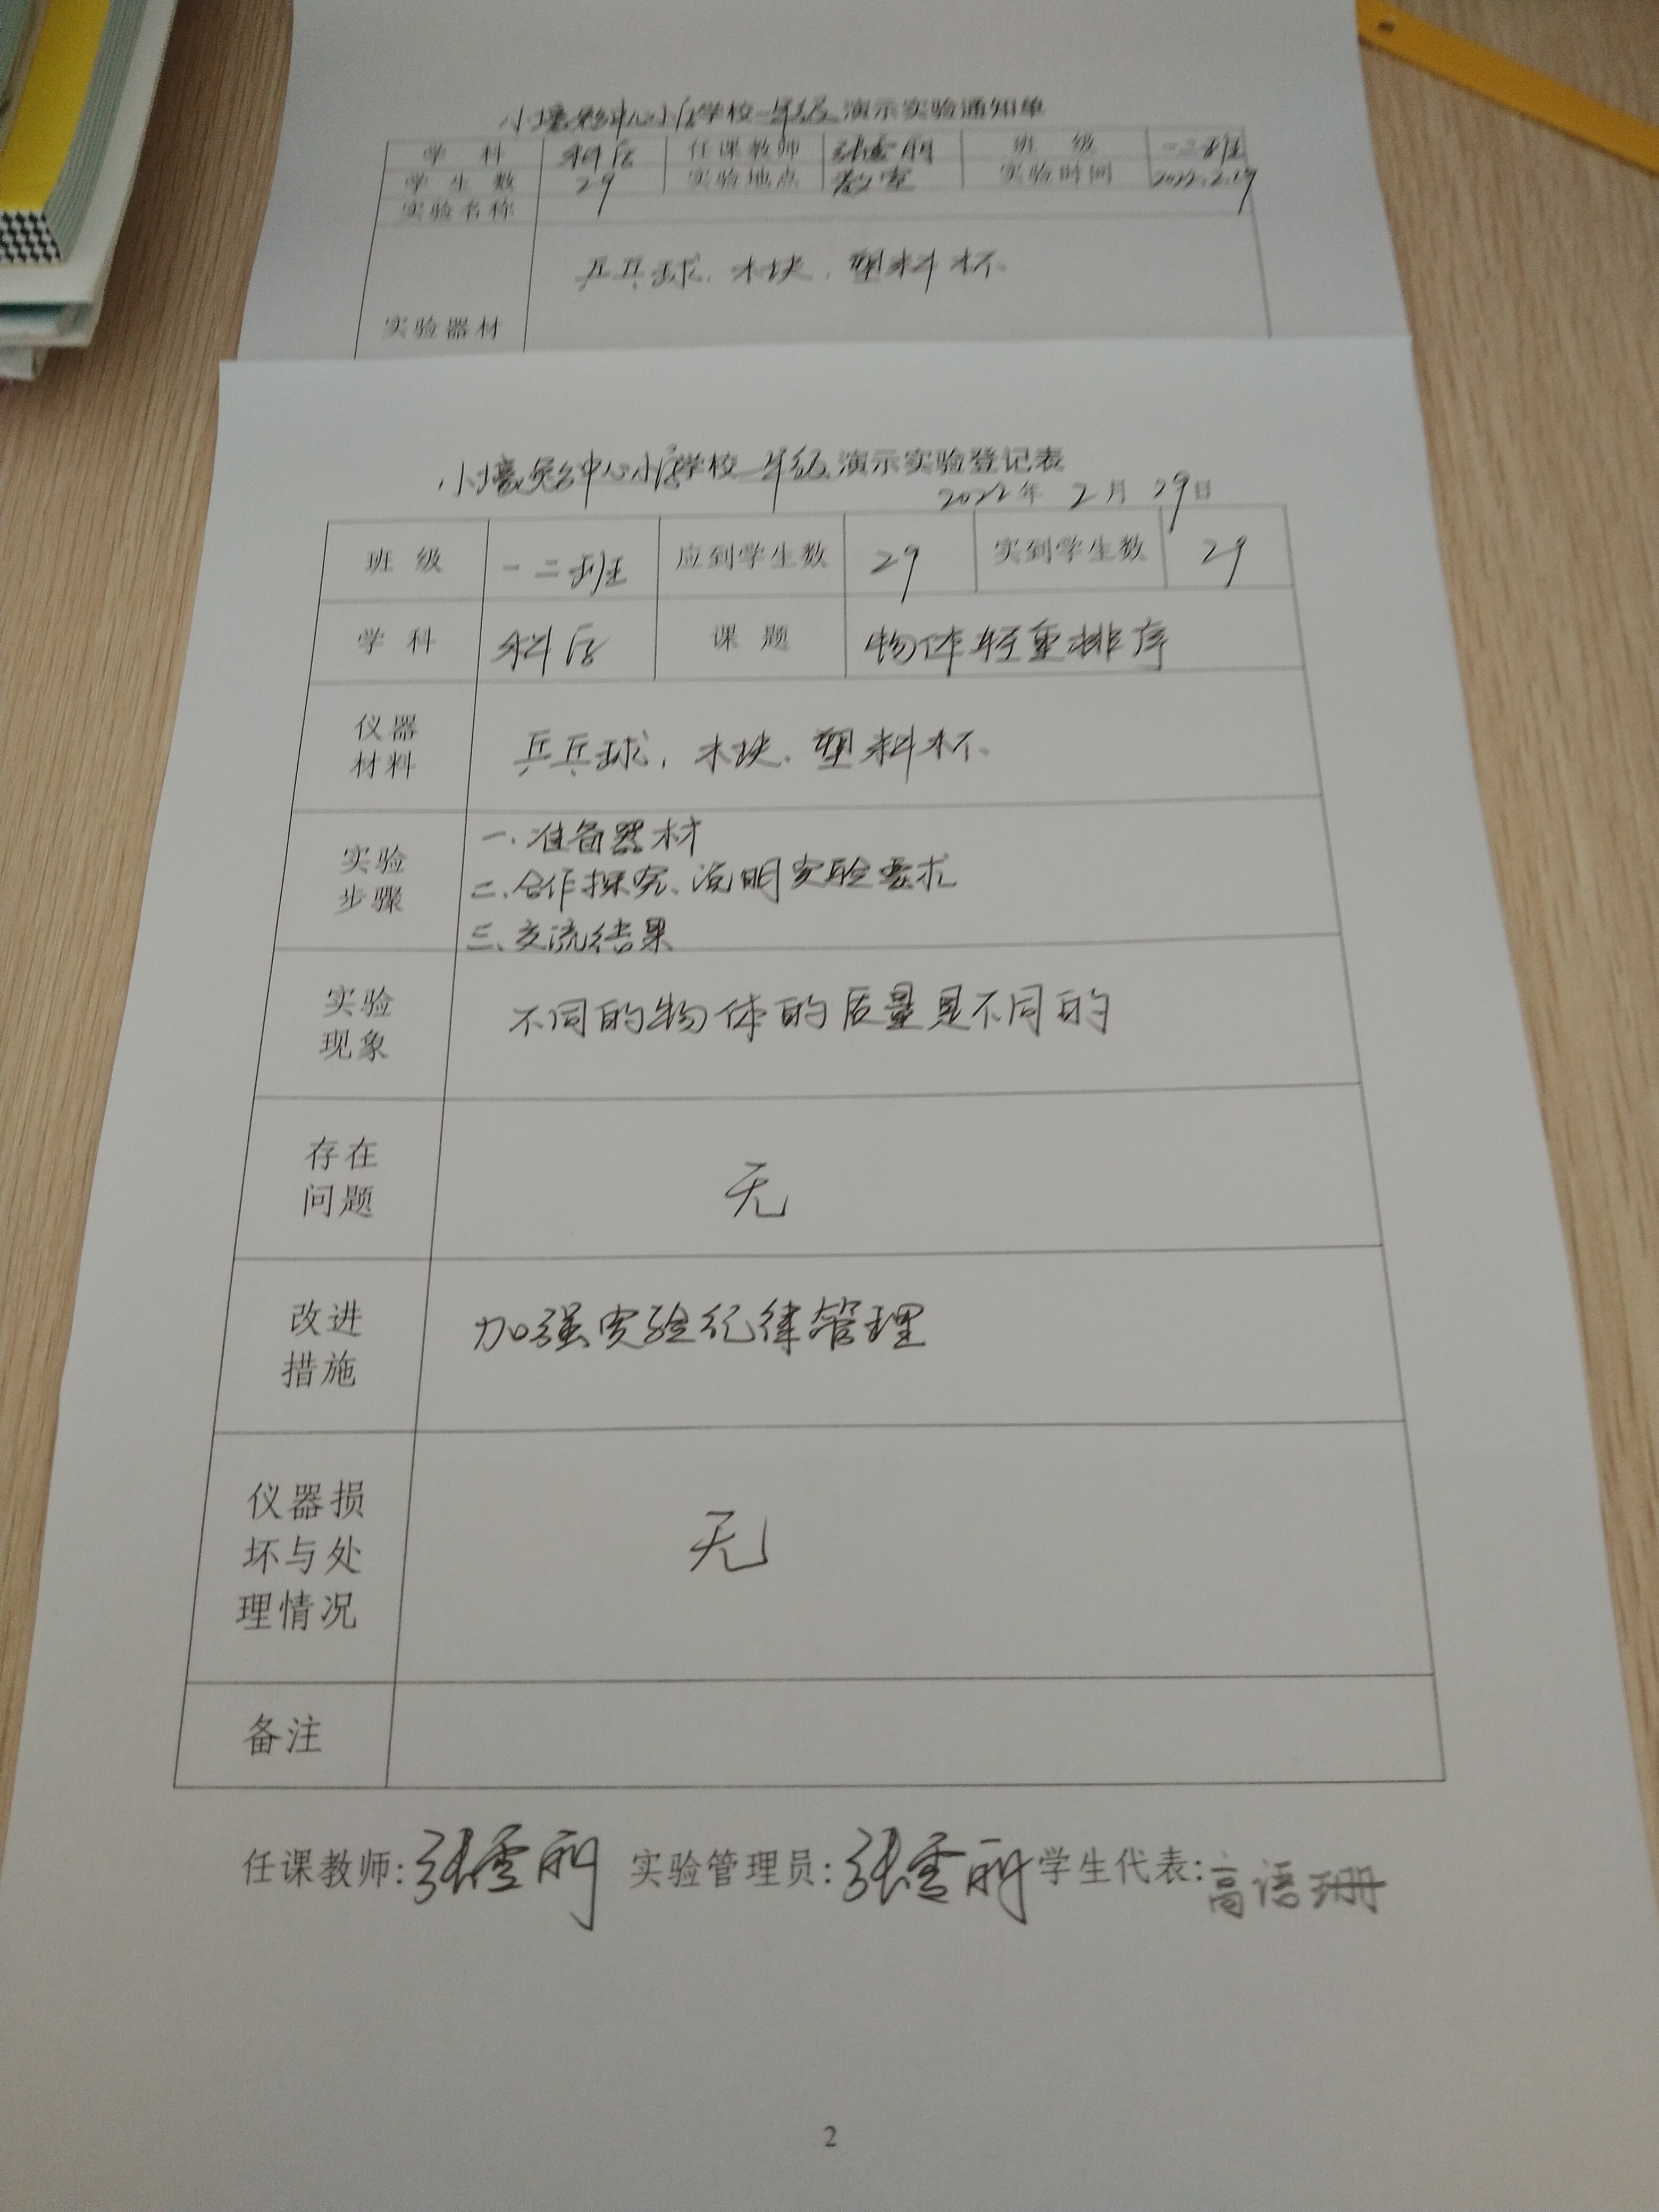 小壕兔乡中心小学学校一年级演示实验通知单
学 科 科学 任课教师 班 级 一二班
学 生 数 29 实验地点 教室 实验时间
实验名称
乒乓球、木块、塑料杯
实验器材
小壕兔乡中心小学学校一年级演示实验登记表
2022年 2月 29日
班 级 一二班 应到学生数 29 实到学生数 29
学 科 科学 课 题 物体轻重排序
仪器
材料
乒乓球、木块、塑料杯
实验
步骤
一、准备器材
二、合作探究、说明实验要求
三、交流结果
实验
现象
不同的物体的质量是不同的
存在
问题
无
改进
措施
加强实验纪律管理
仪器损
坏与处
理情况
无
备注
任课教师: 张雪丽 实验管理员: 张雪丽 学生代表: 高语珊
2